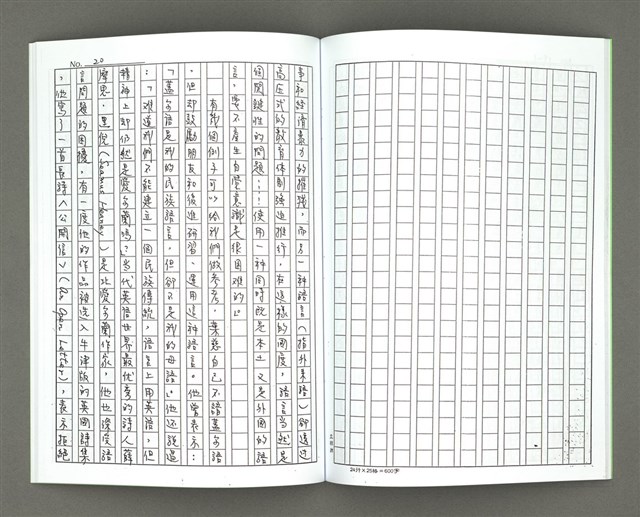 No. 20
爭和經濟暴力的摧殘，而另一種語言（指外來語）卻透過
高壓式的教育體制強迫推行，在這樣的國度，語言當然是
個關鍵性的問題……使用一種同時既是本土又是外國的語
言，要不產生自覺意識是很困難的。」
有幾個例子可以給我們做參考。葉慈自己不諳蓋爾語
，但卻鼓勵朋友和後進研習、運用這種語言。他曾表示：
「蓋爾語是我的民族語言，但卻不是我的母語。」他還說過
：「難道我們不能建立一個民族傳統，語言上用英語，但
精神上卻仍然是愛爾蘭嗎？」當代英語世界最優秀的詩人薛
摩思．黑倪（Seamus Heaney）是北愛爾蘭作家，他也深受語
言問題的困擾。有一度他的作品被選入牛津版的英國詩集
，他寫了一首長詩〈公開信〉（An Open Letter），表示拒絕
24行×25格＝600字